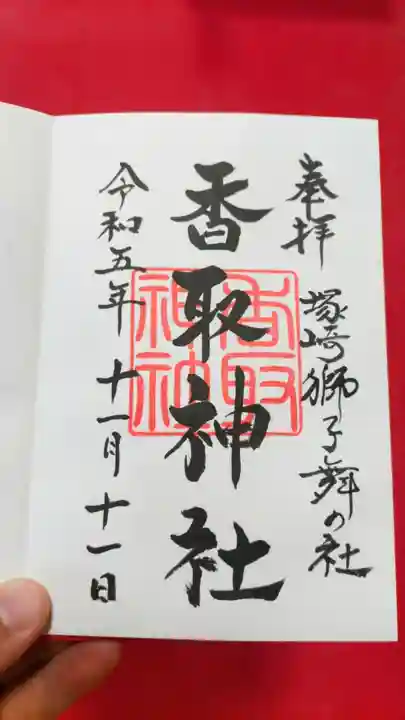 奉拝
塚崎獅子舞の社
香取神社
香取神社
令和五年 十一月 十一日